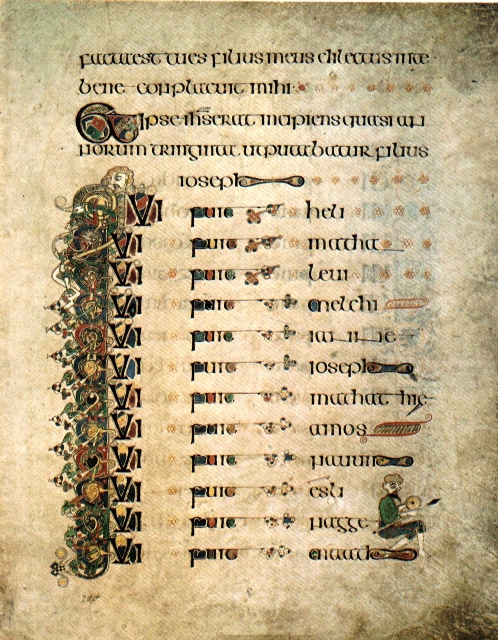 factaest tues filius meus dilectus inte
bene conplacuit mihi
Et ipse ihs erat incipiens quasi an
norum triginta utputabatur filius
ioseph
QUI fuit heli
QUI fuit matha
QUI fuit leui
QUI fuit melchi
QUI fuit iannae
QUI fuit ioseph
QUI fuit mathathie
QUI fuit amos
QUI fuit nauum
QUI fuit esli
QUI fuit nagge
QUI fuit maath